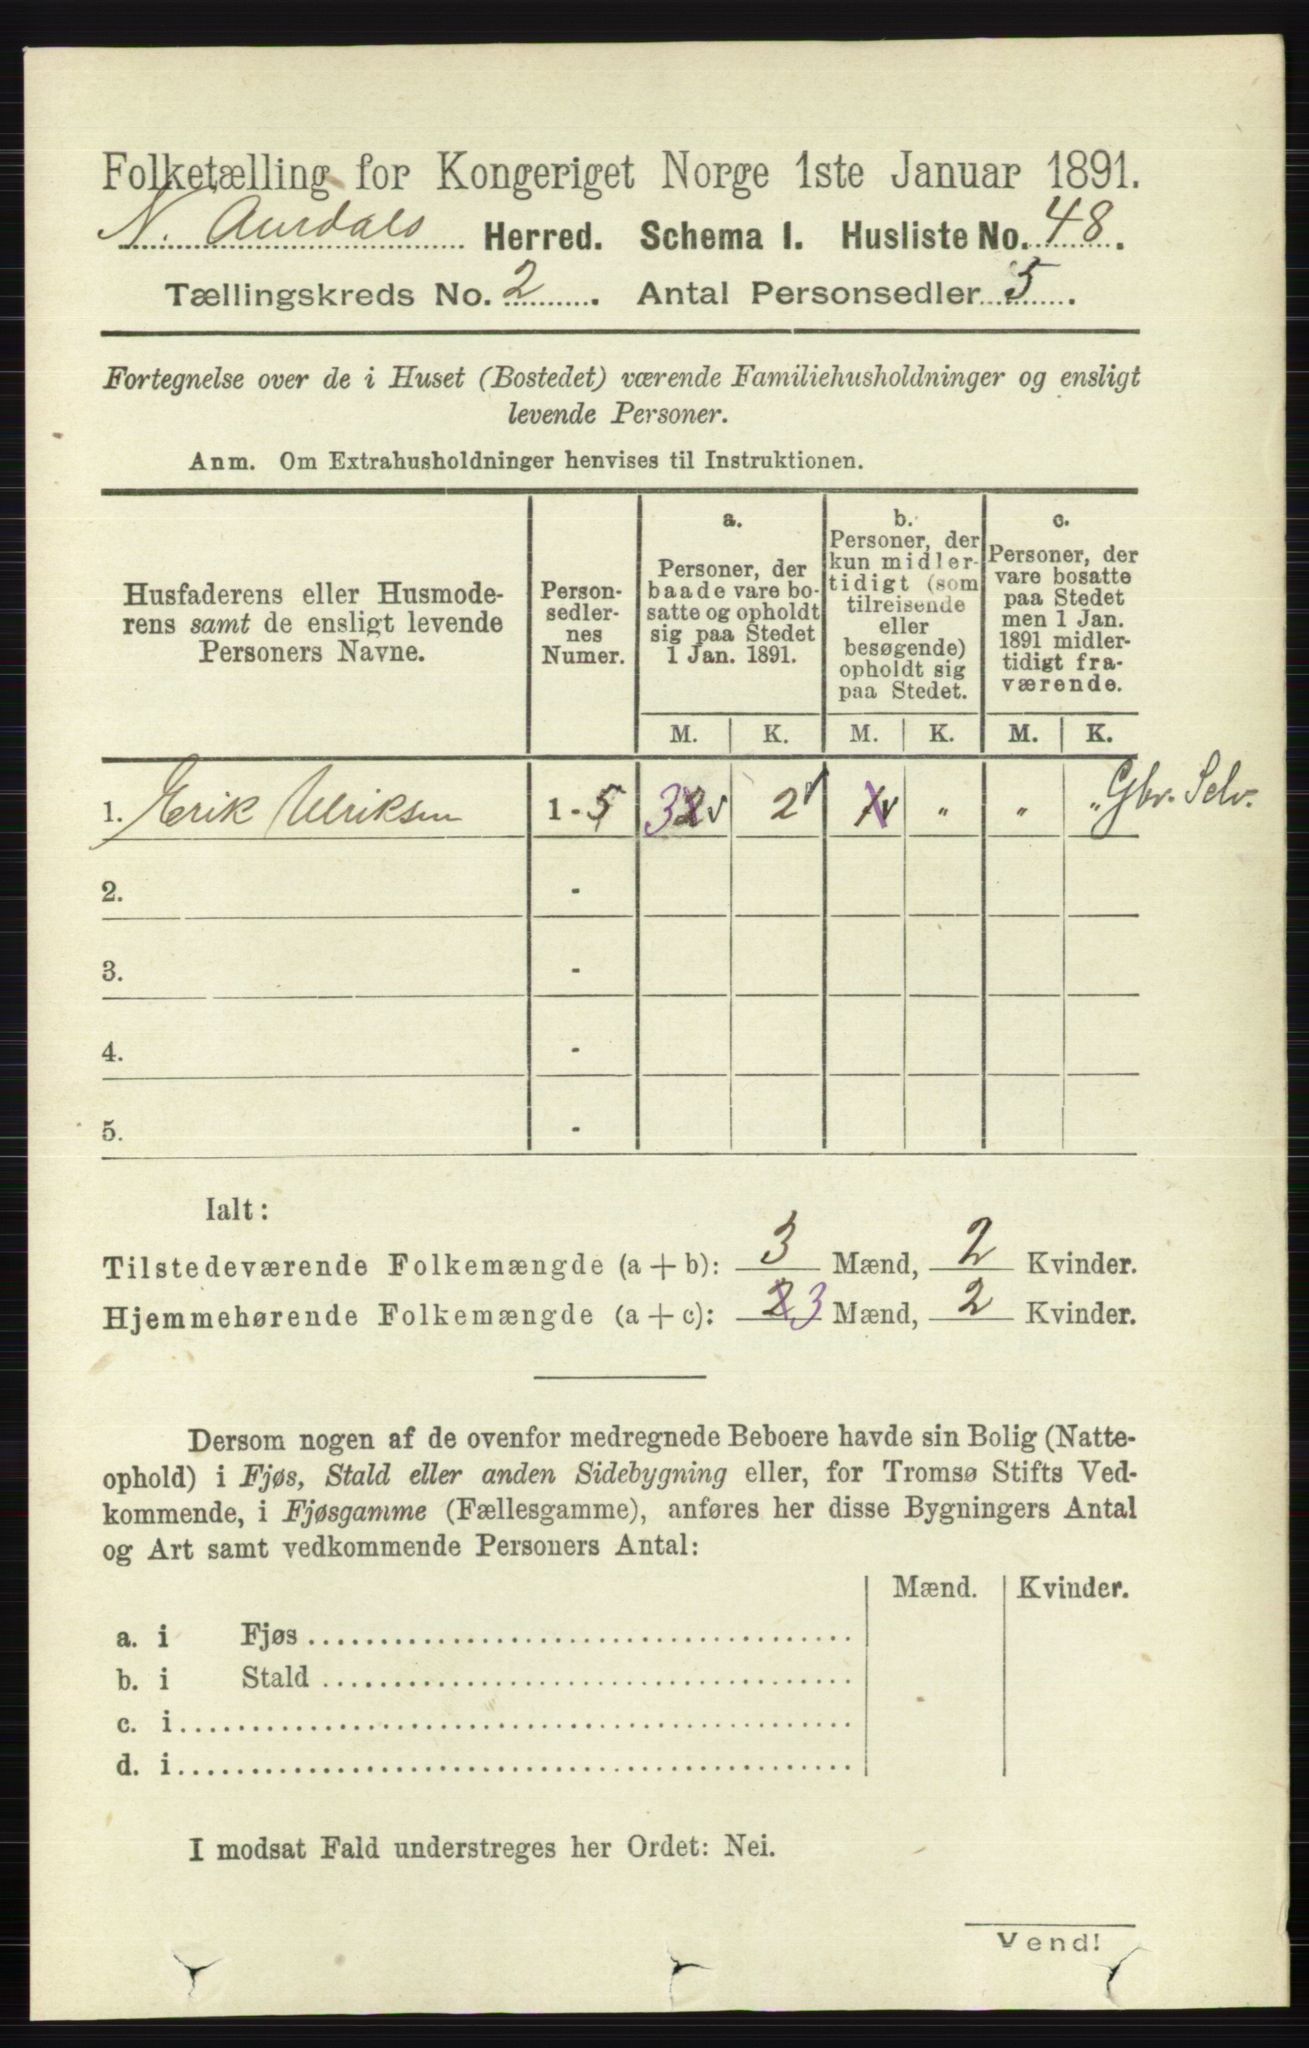 Folketælling for Kongeriget Norge 1ste Januar 1891.
N. Aurdals Herred. Schema I. Husliste No. 48.
Tællingskreds No. 2. Antal Personsedler 5.
Fortegnelse over de i Huset (Bostedet) værende Familiehusholdninger og ensligt
levende Personer.
Anm. Om Extrahusholdninger henvises til Instruktionen.
Husfaderens eller Husmode-
rens samt de ensligt levende
Personers Navne.
Person-
sedler-
nes
Numer.
a.
Personer, der
baade vare bo-
satte og opholdt
sig paa Stedet
1 Jan. 1891.
b.
Personer, der
kun midler-
tidigt (som
tilreisende
eller
besøgende)
opholdt sig
paa Stedet.
c.
Personer, der
vare bosatte
paa Stedet
men 1 Jan.
1891 midler-
tidigt fra-
værende.
M. K. M. K. M. K.
1. Erik Ulriksen 1 - 5 3 2 2 1 " " " Gbr. Selv.
2. -
3. -
4. -
5. -
Ialt:
Tilstedeværende Folkemængde (a + b): 3 Mænd, 2 Kvinder.
Hjemmehørende Folkemængde (a + c): 2 3 Mænd, 2 Kvinder.
Dersom nogen af de ovenfor medregnede Beboere havde sin Bolig (Natte-
ophold) i Fjøs, Stald eller anden Sidebygning eller, for Tromsø Stifts Ved-
kommende, i Fjøsgamme (Fællesgamme), anføres her disse Bygningers Antal
og Art samt vedkommende Personers Antal:
Mænd. Kvinder.
a. i Fjøs
b. i Stald
c. i
d. i
I modsat Fald understreges her Ordet: Nei.
Vend!